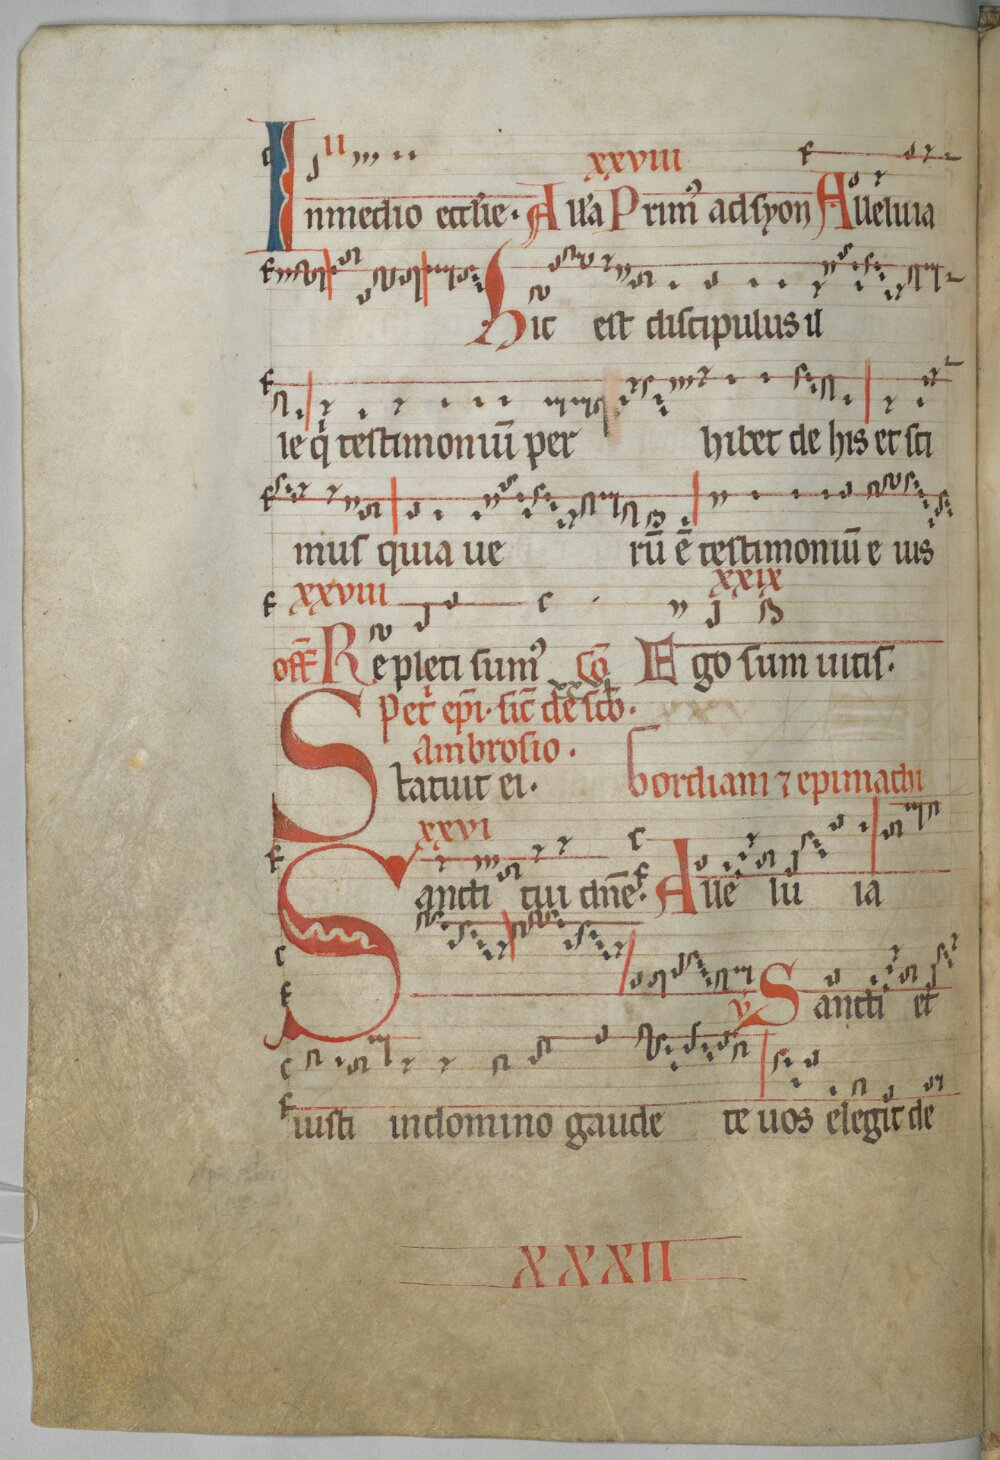 II
xxviii
Inmedio eccl̄ie. All'a Prim⁹ adsyon Alleluia
Hic est discipulus il
le q̇ testimoniū per hibet de his et sci
mus quia ue rū ē testimoniū e ius
xxviii xxix
off̄ Repleti sum⁹ cō Ego sum uitis.
Petˀ ep̄i. sic̄ de sc̄o.
ambrosio.
Statuit ei. Gordiani ⁊ epimachi
xxvi
Sancti tui dn̄e. Alle lu ia
v̄ Sancti et
iusti indomino gaude te uos elegit de
XXXII